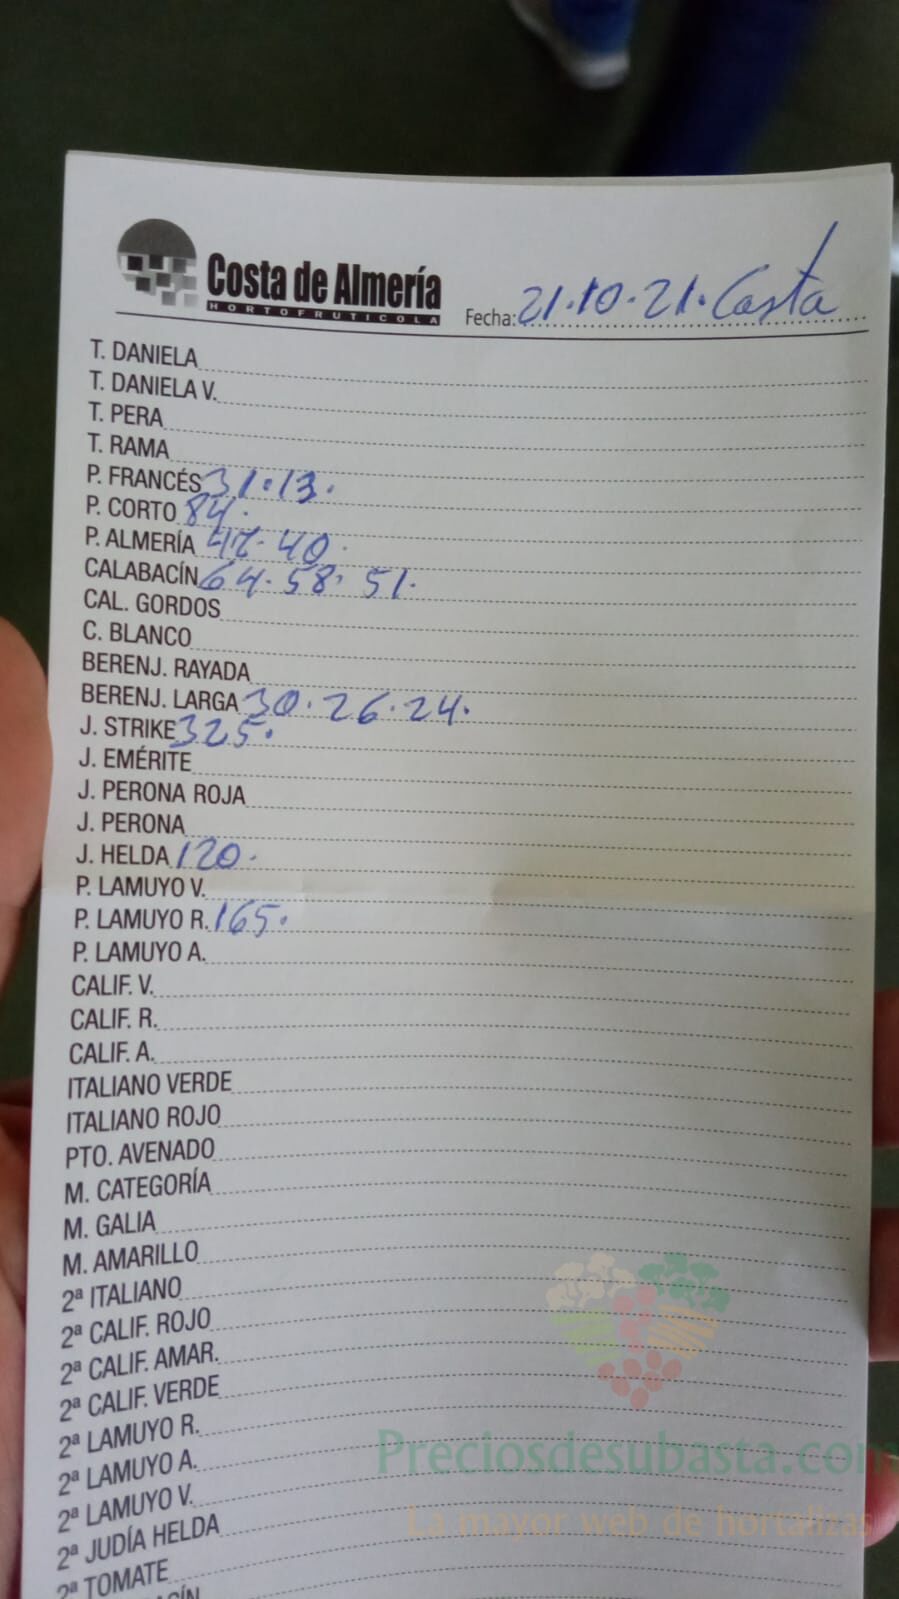 Costa de Almería
HORTOFRUTICOLA
Fecha: 21.10.21. Costa
T. DANIELA
T. DANIELA V.
T. PERA
T. RAMA
P. FRANCÉS 31.13.
P. CORTO 84.
P. ALMERÍA 47.40.
CALABACÍN 64.58.51.
CAL. GORDOS
C. BLANCO
BERENJ. RAYADA
BERENJ. LARGA 30.26.24.
J. STRIKE 325.
J. EMÉRITE
J. PERONA ROJA
J. PERONA
J. HELDA 120.
P. LAMUYO V.
P. LAMUYO R. 165.
P. LAMUYO A.
CALIF. V.
CALIF. R.
CALIF. A.
ITALIANO VERDE
ITALIANO ROJO
PTO. AVENADO
M. CATEGORÍA
M. GALIA
M. AMARILLO
2ª ITALIANO
2ª CALIF. ROJO
2ª CALIF. AMAR.
2ª CALIF. VERDE
2ª LAMUYO R.
2ª LAMUYO A.
2ª LAMUYO V.
2ª JUDÍA HELDA
2ª TOMATE
Preciosdesubasta.com
La mayor web de hortalizas